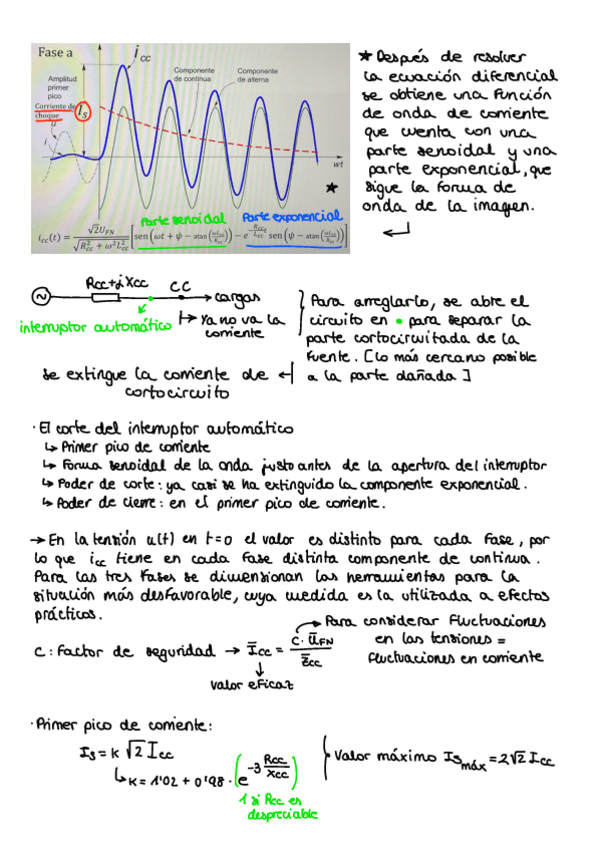 Fase a
i cc
Amplitud
primer
pico
Corriente de
choque
Is
u
i
Componente
de continua
Componente
de alterna
wt
★
Parte senoidal Parte exponencial
i_cc(t) = √2U_FN / √(R²_cc + ω²L²_cc) [sen(ωt + ψ − atan(ωL_cc/R_cc)) − e^(−R_cc/L_cc t) sen(ψ − atan(ωL_cc/R_cc))]
★ Después de resolver
la ecuación diferencial
se obtiene una función
de onda de corriente
que cuenta con una
parte senoidal y una
parte exponencial, que
sigue la forma de
onda de la imagen.
Rcc+jXcc CC
→ cargas
interruptor automático
↦ Ya no va la
corriente
Para arreglarlo, se abre el
circuito en • para separar la
parte cortocircuitada de la
fuente. [lo más cercano posible
a la parte dañada]
se extingue la corriente de
cortocircuito
· El corte del interruptor automático
↳ Primer pico de corriente
↳ Forma senoidal de la onda justo antes de la apertura del interruptor
↳ Poder de corte: ya casi se ha extinguido la componente exponencial.
↳ Poder de cierre: en el primer pico de corriente.
→ En la tensión u(t) en t=0 el valor es distinto para cada fase, por
lo que icc tiene en cada fase distinta componente de continua.
Para las tres fases se dimensionan las herramientas para la
situación más desfavorable, cuya medida es la utilizada a efectos
prácticos.
Para considerar fluctuaciones
en las tensiones =
fluctuaciones en corriente
C: Factor de seguridad → Icc = C·U_FN / Zcc
valor eficaz
· Primer pico de corriente:
Is = K √2 Icc
↳ K = 1'02 + 0'98 · (e^(−3 Rcc/Xcc))
1 si Rcc es
despreciable
Valor máximo Is máx = 2√2 Icc